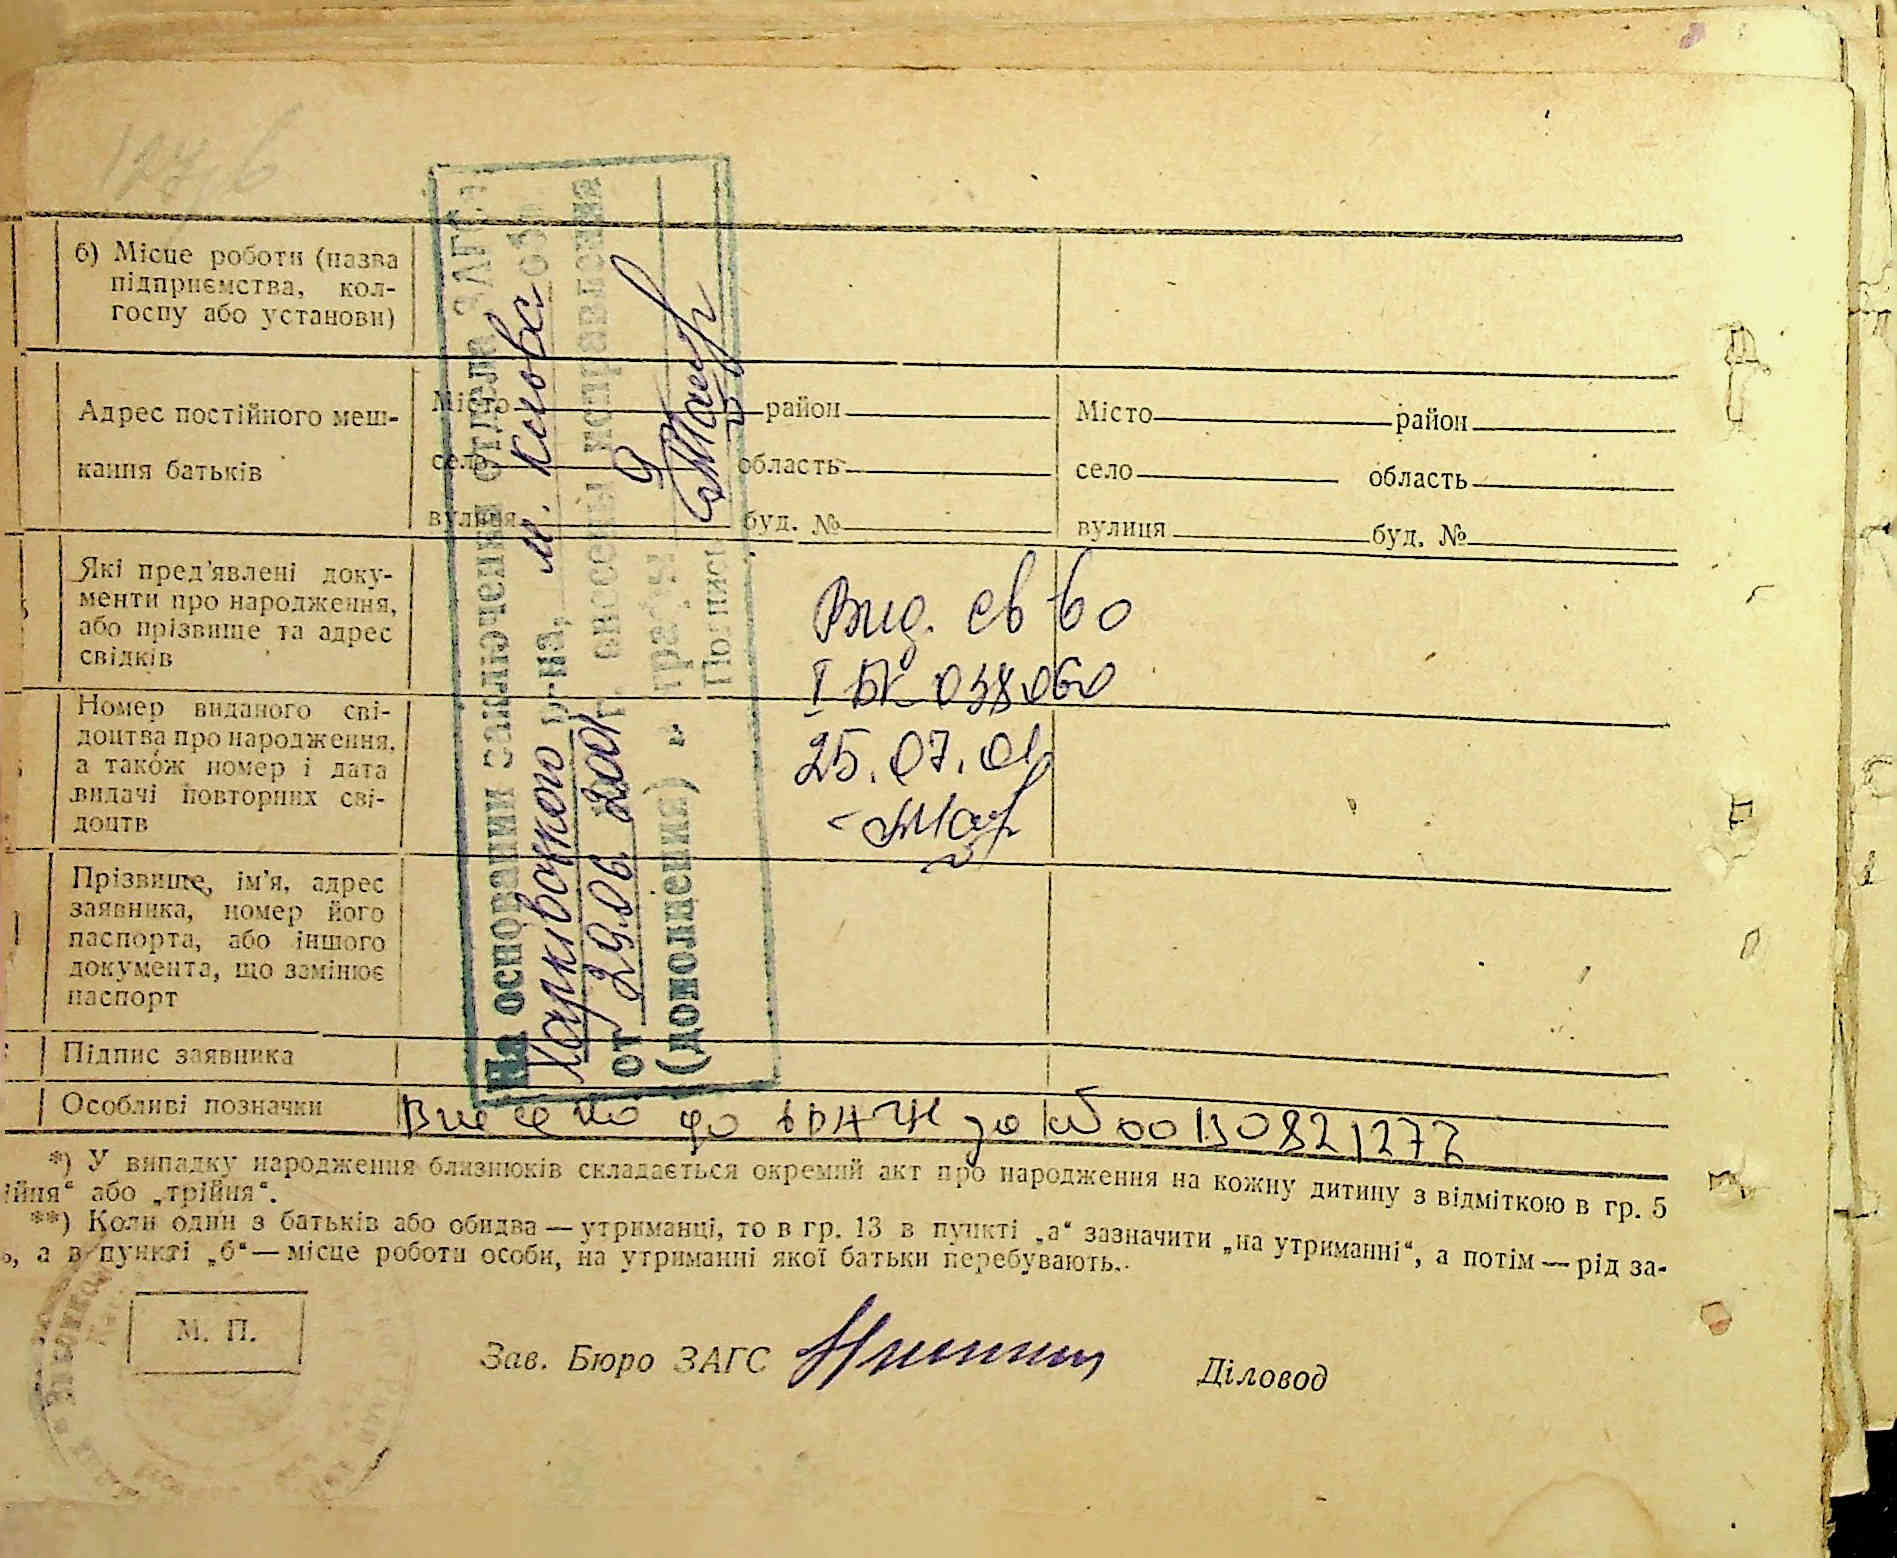 б) Місце роботи (назва
підприємства, кол-
госпу або установи)
Адрес постійного меш-
кання батьків
Місто район
село область
вулиця буд. №
Місто район
село область
вулиця буд. №
Які пред'явлені доку-
менти про народження,
або прізвище та адрес
свідків
Номер виданого сві-
доцтва про народження,
а також номер і дата
видачі повторних сві-
доцтв
Вид. св во
I БК 038060
25.07.01
Прізвище, ім'я, адрес
заявника, номер його
паспорта, або іншого
документа, що замінює
паспорт
Підпис заявника
Особливі позначки
Внесено до за № 00130821272
На основании заключения отдела ЗАГСа
Харківського р-на, м. Києва
от 29.06 2001 г. внесены исправления
(дополнения) в графы
Подпись
*) У випадку народження близнюків складається окремий акт про народження на кожну дитину з відміткою в гр. 5
ійня“ або „трійня“.
**) Коли один з батьків або обидва — утриманці, то в гр. 13 в пункті „а“ зазначити „на утриманні“, а потім — рід за-
, а в пункті „б“ — місце роботи особи, на утриманні якої батьки перебувають.
М. П.
Зав. Бюро ЗАГС
Діловод